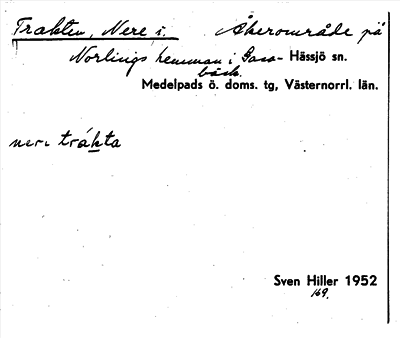 Trakten, Nere i. Åkerområde på
Norlings hemman i Gass- Hässjö sn.
bäck.
Medelpads ö. doms. tg, Västernorrl. län.
neri trákta
Sven Hiller 1952
169.